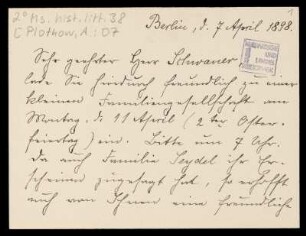 2° Ms. hist. litt. 38
[Plotkow, A : 07
Berlin, d. 7 April 1898.
Sehr geehrter Herr Schwaner
lade Sie hiedurch freundlich zu einer
kleinen Familiengesellschaft am
Montag, d. 11 April (2ter Oster-
feiertag) ein. Bitte um 7 Uhr.
Da auch Familie Seydel ihr Er-
scheinen zugesagt hat, so erhofft
auch von Ihnen eine freundliche